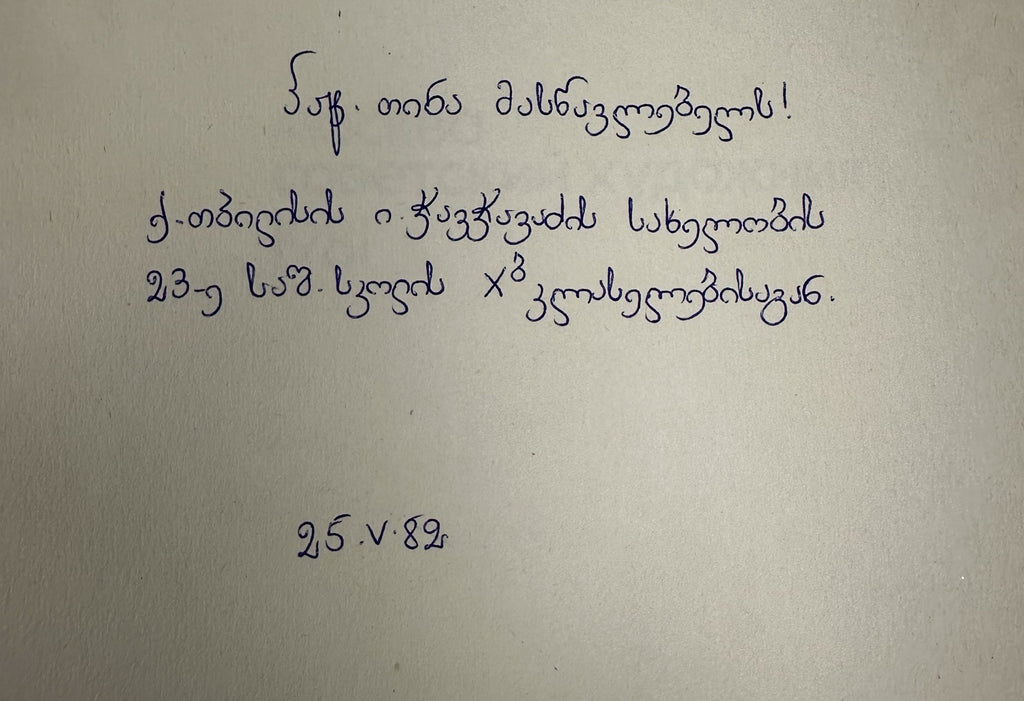 პატ. თინა მასწავლებელს!
ქ. თბილისის ი. ჭავჭავაძის სახელობის
23-ე საშ. სკოლის Xᵇ კლასელებისაგან.
25.V.82